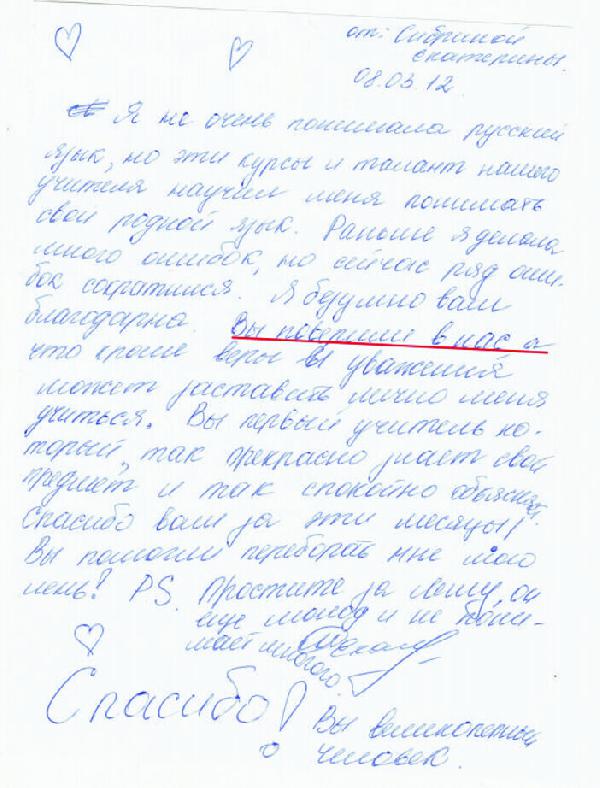 от: Сибриной
Екатерины.
08.03.12.
Я не очень понимала русский
язык, но эти курсы и талант нашего
учителя научил меня понимать
свой родной язык. Раньше я делала
много ошибок, но сейчас ряд оши-
бок сократился. Я безумно вам
благодарна. Вы поверили в нас, а
что кроме веры и уважения
может заставить лично меня
учиться. Вы первый учитель ко-
торый, так прекрасно знает свой
предмет и так спокойно объясняет.
Спасибо вам за эти месяцы!
Вы помогли перебороть мне мою
лень! P.S. Простите за Лешу, он
еще молод и не пони-
мает многого
Спасибо!
Вы великолепный
человек.